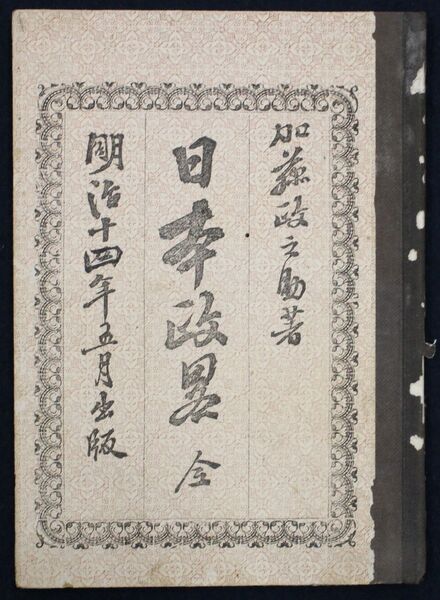 加藤政之助著
日本政畧 全
明治十四年五月出版